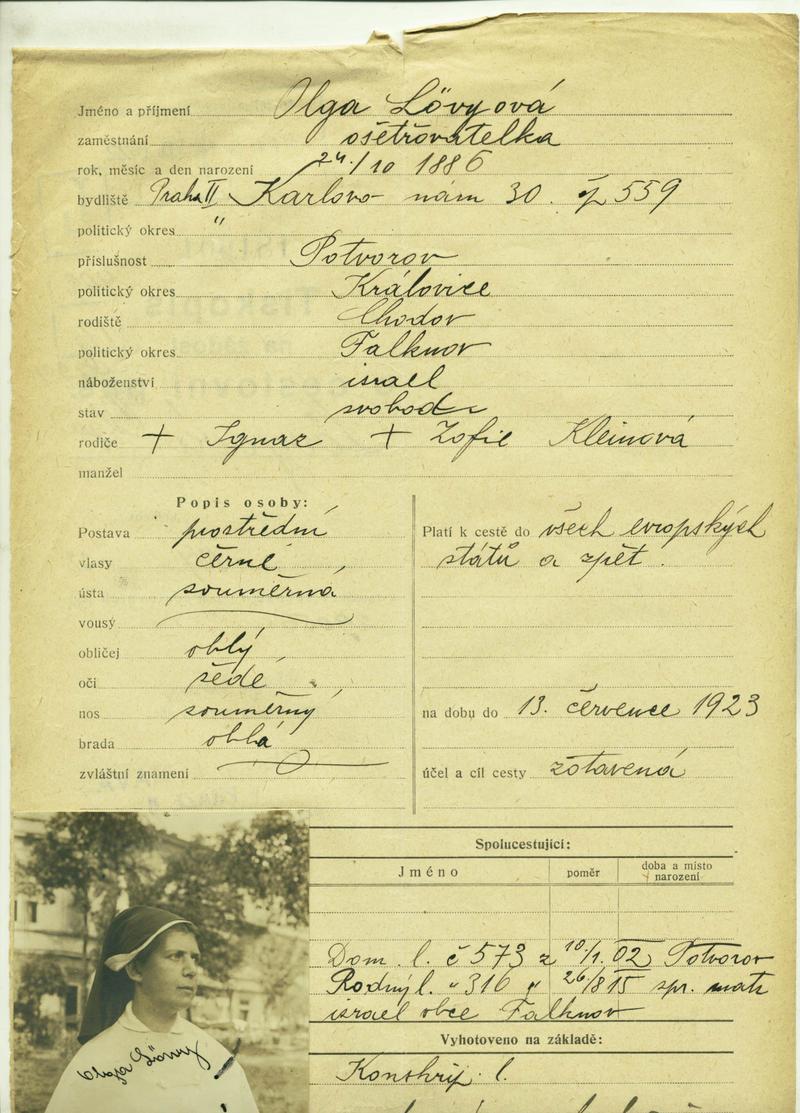 Jméno a příjmení Olga Lövyová
zaměstnání ošetřovatelka
rok, měsíc a den narození 24./10 1886
bydliště Praha II Karlovo nám 30. čp 559
politický okres "
příslušnost Potvorov
politický okres Královice
rodiště Chodov
politický okres Falknov
náboženství israel
stav svobod
rodiče + Ignaz + Zofie Kleinová
manžel
Popis osoby:
Postava prostřední
vlasy černé,
ústa souměrná
vousy
obličej oblý,
oči šedé,
nos souměrný
brada oblá
zvláštní znamení
Platí k cestě do všech evropských
států a zpět.
na dobu do 13. července 1923
účel a cíl cesty zotavená
Spolucestující:
Jméno poměr doba a místo narození
Dom. l. č 573 z 10/1. 02 Potvorov
Rodný l. " 316 " 26/8 15 spr. matr
israel obce Falknov
Vyhotoveno na základě:
Konskrip. l.
Olga Lövy